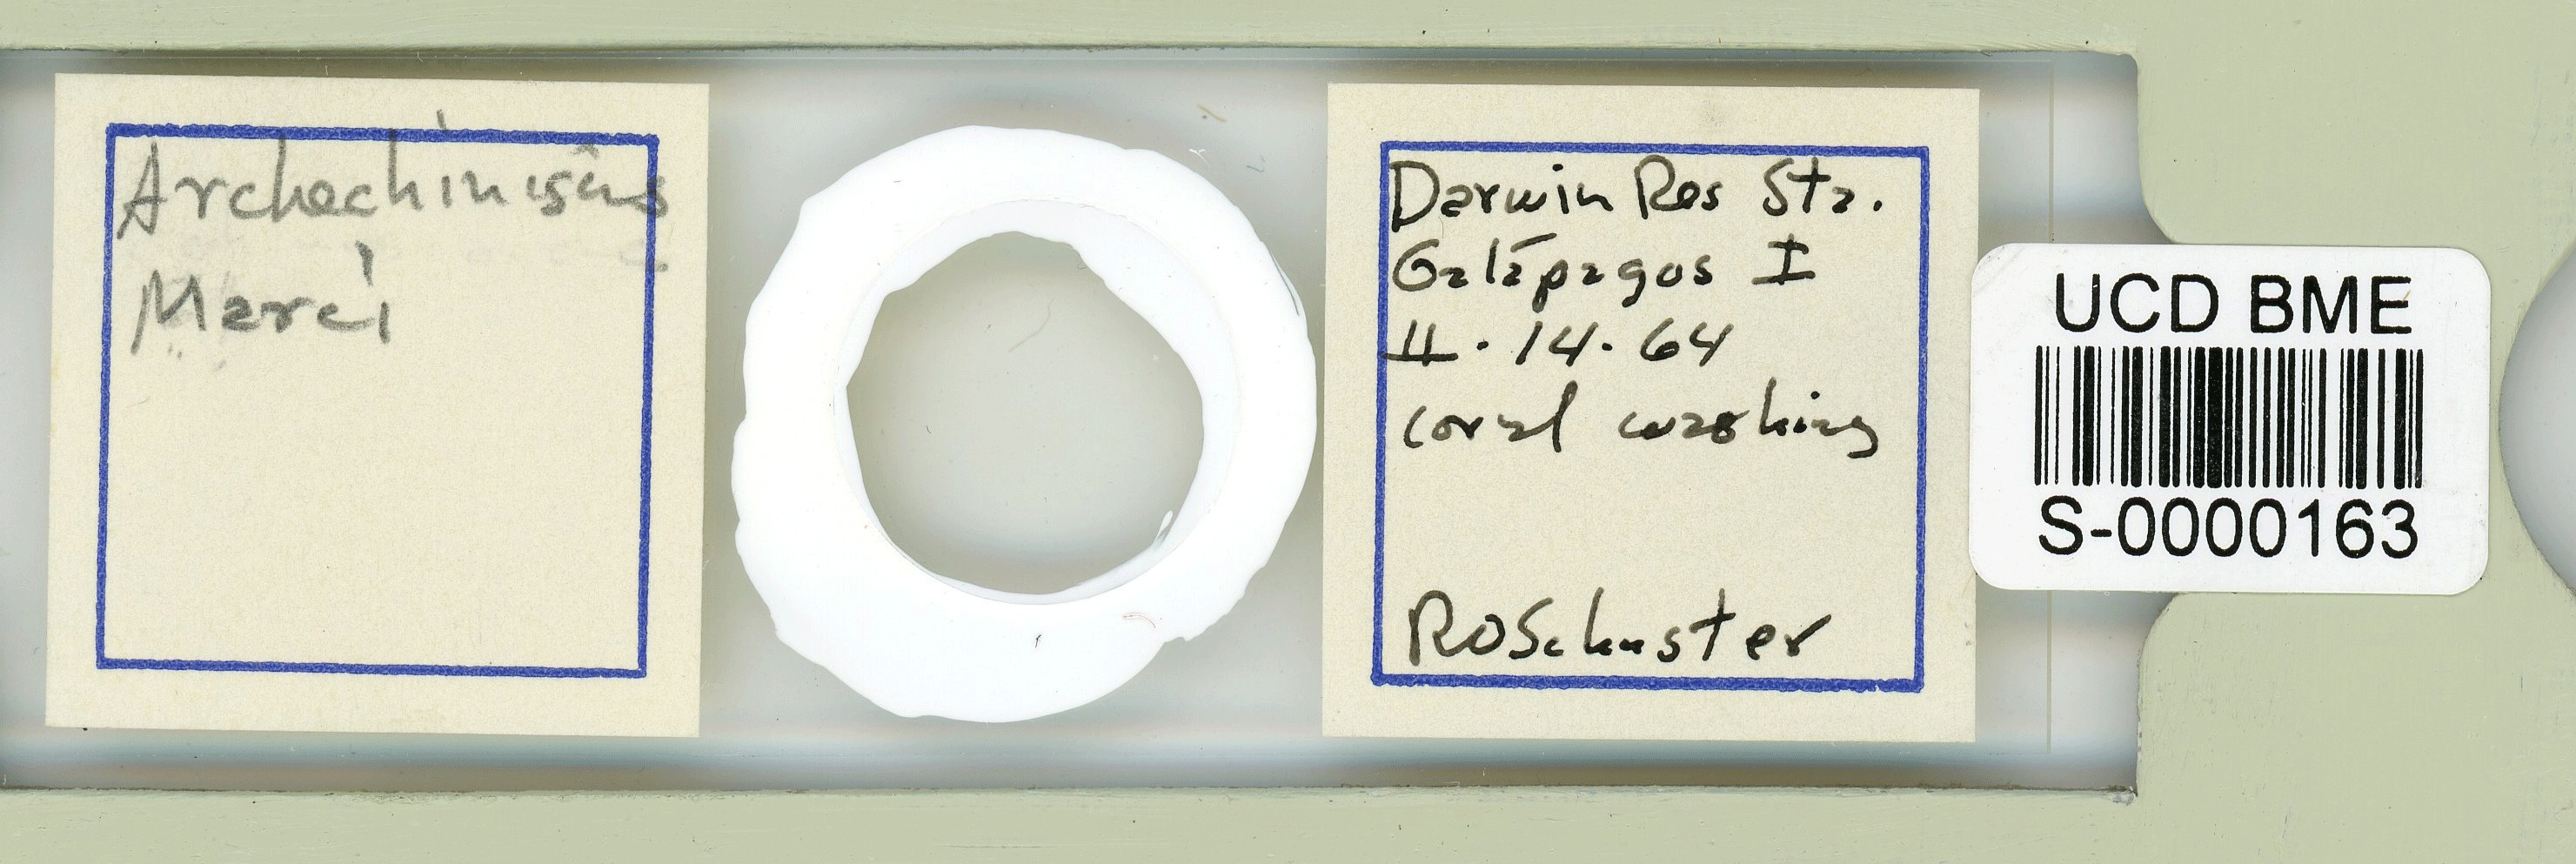 Archechiniscus
Marci
Darwin Res Sta.
Galápagos I
II·14·64
coral washing
ROSchuster
UCD BME
S-0000163